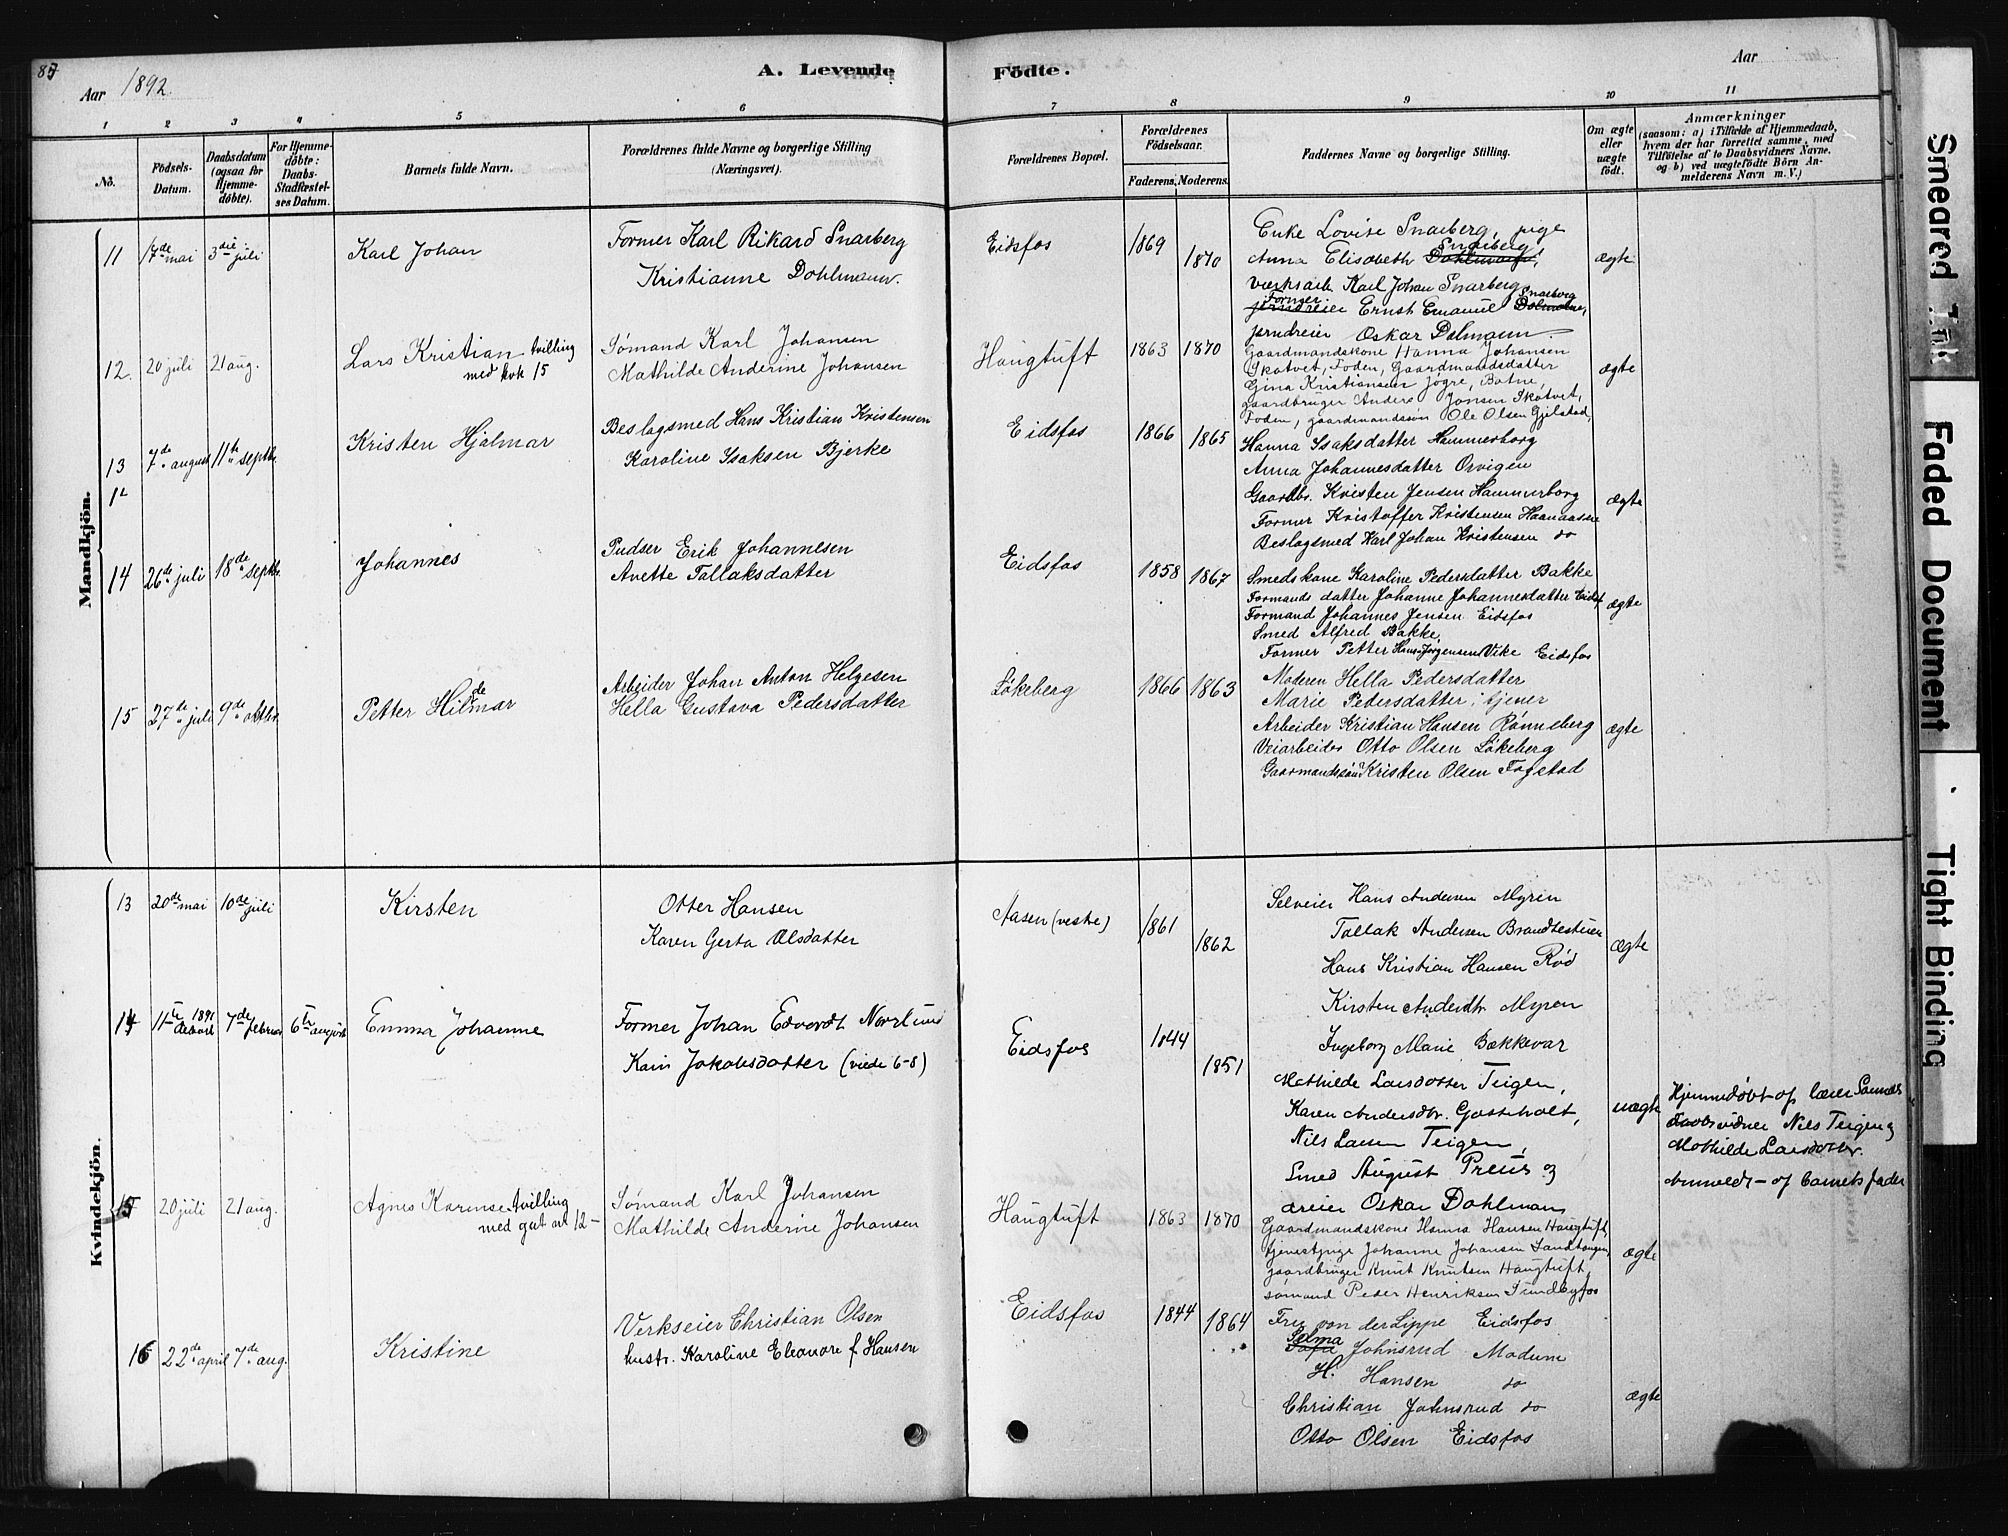 Aar 1892.
A. Levende Födte.
Aar
1 2 3 4 5 6 7 8 9 10 11
No.
Födsels-Datum.
Daabsdatum (ogsaa for Hjemme-döbte).
For Hjemme-döbte: Daabs-Stadfæstel-ses Datum.
Barnets fulde Navn.
Forældrenes fulde Navne og borgerlige Stilling (Næringsvei).
Forældrenes Bopæl.
Forældrenes Födselsaar.
Faderens. Moderens.
Faddernes Navne og borgerlige Stilling.
Om ægte eller uægte födt.
Anmærkninger (saasom: a) i Tilfælde af Hjemmedaab, hvem der har forrettet samme, med Tilföielse af to Daabsvidners Navne. og b) ved uægtefödte Börn Anmelderens Navn m. V.)
Mandkjön.
11 17de mai 3die juli Karl Johan
Former Karl Rikard Snarberg
Kristianne Dohlmann.
Eidsfos 1869 1870
Enke Lovise Snarberg, pige
Anna Elisabeth Snarberg
Værksarb Karl Johan Snarberg
Former Ernst Emanuel Snarberg
jerndreier Oskar Dolmann
ægte
12. 20 juli 21 aug. Lars Kristian tvilling
med kvk 15
Sømand Karl Johansen
Mathilde Anderine Johansen
Haugtuft 1863 1870
Gaardmandskone Hanna Johansen
Skatvet, Foden, Gaardmandsdatter
Gina Kristiansen Jøgre, Botne,
gaardbruger Anders Jonsen Skatvet,
Foden, gaardmandssøn Ole Olsen Gjelstad,
ægte
13 7de august 11te septbr. Kristen Hjalmar
Beslagsmed Hans Kristian Kristensen
Karoline Isaksen Bjerke
Eidsfos 1866 1865
Hanna Isaksdatter Hammerborg
Anna Johannesdatter Orvigen
Gaardbr. Kristen Jensen Hammerborg
Former Kristoffer Kristensen Haanaasen
Beslagsmed Karl Johan Kristensen do
ægte
14 26de juli 18de septbr. Johannes
Pudser Erik Johannesen
Avette Tollaksdatter
Eidsfos 1858 1867
Smedskone Karoline Pedersdatter Bakke
Formands datter Johanne Johannesdatter Eidsf
Formand Johannes Jensen Eidsfos
Smed Alfred Bakke,
Former Petter Hans Jørgensen Vike Eidsfos
ægte
15 27de juli 9de oktbr. Petter Hildemar
Arbeider Johan Anton Helgesen
Hella Gustava Pedersdatter
Løkeberg 1866 1863
Moderen Hella Pedersdatter
Marie Pedersdatter, tjener
Arbeider Kristian Hansen Rønneberg
Veiarbeider Otto Olsen Løkeberg
Gaarmandssøn Kristen Olsen Fogstad
ægte
Kvindekjön.
13 20de mai 10de juli Kirsten
Otter Hansen
Karen Gerta Olsdatter
Aasen (vestre) 1861 1862
Selveier Hans Andersen Myren
Tollak Andersen Brandtestuen
Hans Kristian Hansen Rød
Kirsten Andersdtr Myren
Ingeborg Marie Bækkevar
ægte
14 11te 1891 7de februar 6te august Emma Johanne
Former Johan Edvardt Norrlund
Karin Jakobsdatter (viede 6-8)
Eidsfos 1844 1851
Mathilde Larsdatter Teigen,
Karen Andersdtr. Gasteholt,
Nils Larsen Teigen,
Smed August Preus og
dreier Oskar Dahlman
uægte
Hjemmedøbt af lærer
Daabsvidner Nils Teigen og
Mathilde Larsdatter.
Anmeldt - af barnets fader
15 20 juli 21 aug. Agnes Karense tvilling
med gut nr 12-
Sømand Karl Johansen
Mathilde Anderine Johansen
Haugtuft 1863 1870
Gaardmandskone Hanna Hansen Haugtuft,
tjenestpige Johanne Johansen Sandtangen,
gaardbruger Knut Knutsen Haugtuft,
sømand Peder Henriksen Sundbyfos
ægte
16 22de april 7de aug. Kristine
Verkseier Christian Olsen
hustr. Karoline Eleonore f. Hansen
Eidsfos 1844 1864
Fru von der Lippe Eidsfos
Selma Johnsrud Modum
H. Hansen do
Christian Johnsrud do
Otto Olsen Eidsfos
ægte
Smeared Ink
Faded Document
Tight Binding